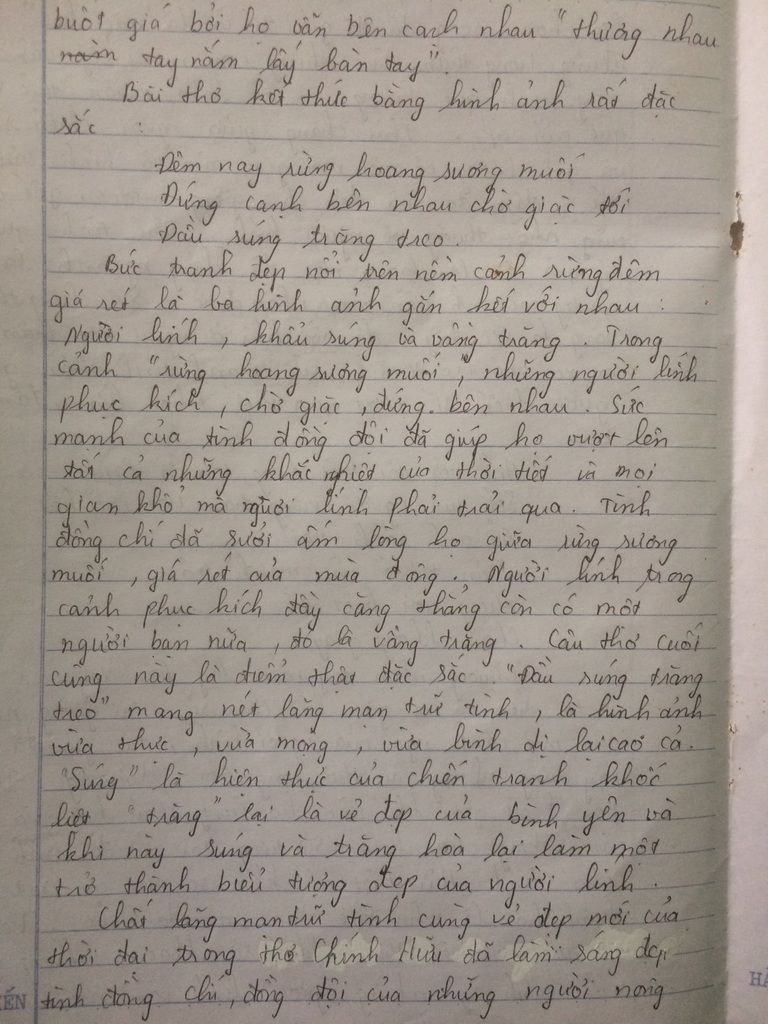 buốt giá bởi họ vẫn bên cạnh nhau "thương nhau
nắm tay nắm lấy bàn tay".
Bài thơ kết thúc bằng hình ảnh rất đặc
sắc :
Đêm nay rừng hoang sương muối
Đứng cạnh bên nhau chờ giặc tới
Đầu súng trăng treo.
Bức tranh đẹp nổi trên nềm cảnh rừng đêm
giá rét là ba hình ảnh gắn kết với nhau :
Người lính, khẩu súng và vầng trăng. Trong
cảnh "rừng hoang sương muối", những người lính
phục kích, chờ giặc, đứng bên nhau. Sức
mạnh của tình đồng đội đã giúp họ vượt lên
tất cả những khắc nghiệt của thời tiết và mọi
gian khổ mà người lính phải trải qua. Tình
đồng chí đã sưởi ấm lòng họ giữa rừng sương
muối, giá rét của mùa đông. Người lính trong
cảnh phục kích đầy căng thẳng còn có một
người bạn nữa, đó là vầng trăng. Câu thơ cuối
cùng này là điểm thật đặc sắc. "Đầu súng trăng
treo" mang nét lãng mạn trữ tình, là hình ảnh
vừa thực, vừa mộng, vừa bình dị lại cao cả.
"Súng" là hiện thực của chiến tranh khốc
liệt "trăng" lại là vẻ đẹp của bình yên và
khi này súng và trăng hoà lại làm một
trở thành biểu tượng đẹp của người lính.
Chất lãng mạn trữ tình cùng vẻ đẹp mới của
thời đại trong thơ Chính Hữu đã làm sáng đẹp
tình đồng chí, đồng đội của những người nong